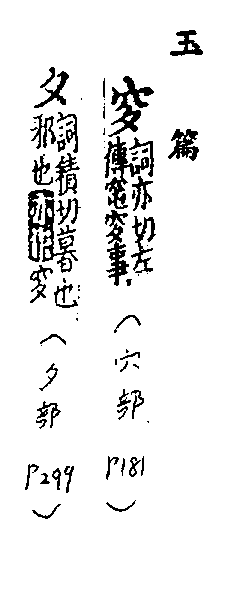 玉篇
穸詞亦切左
傳窀穸事
（穴部 P181）
夕詞積切暮也
邪也亦作穸
（夕部 P299）